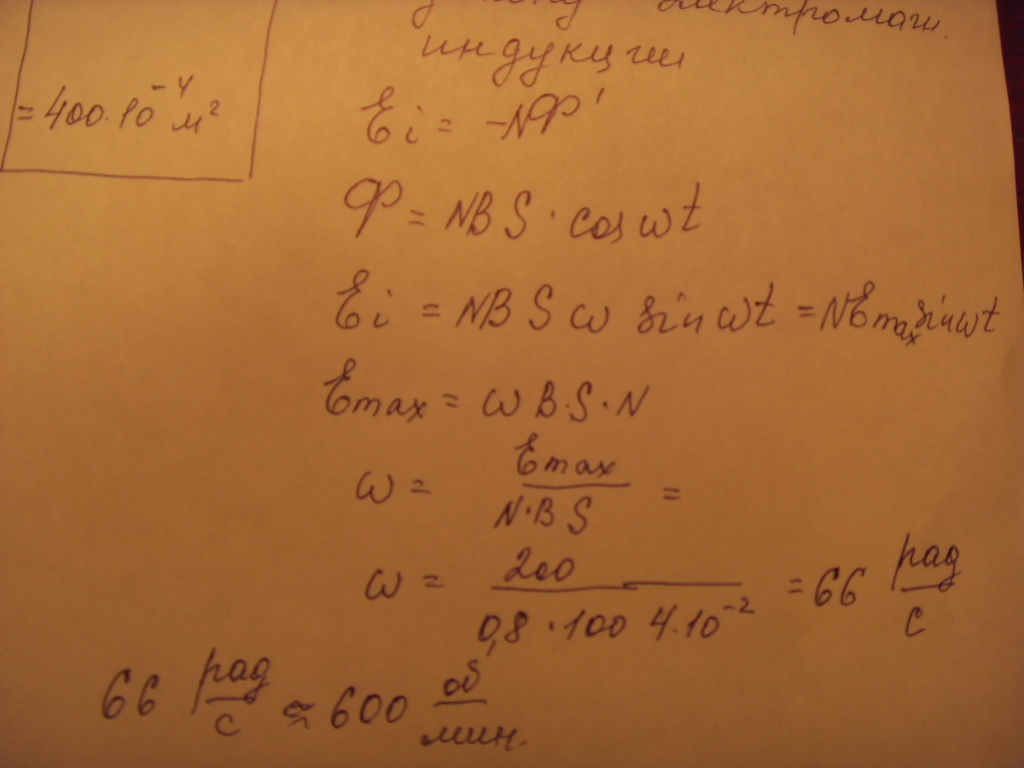 электромагн.
индукции
= 400·10⁻⁴ м²
Ei = -NФ'
Ф = NBS · cos ωt
Ei = NBSω sin ωt = NEmax sin ωt
Emax = ωB·S·N
ω = Emax / N·BS =
ω = 200 / 0,8·100 4·10⁻² = 66 рад/с
66 рад/с ≈ 600 об/мин.